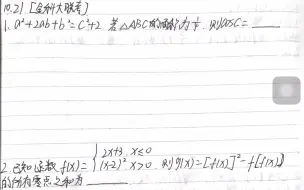 10.21 [金科大联考]
1. a²+2ab+b²=C²+2 若△ABC的面积为, 则sinC=____
2. 已知函数 f(x)= { 2x+3 x≤0
(x-2)² x>0 则g(x)=[f(x)]²-f[f(x)]
的所有零点之和为____